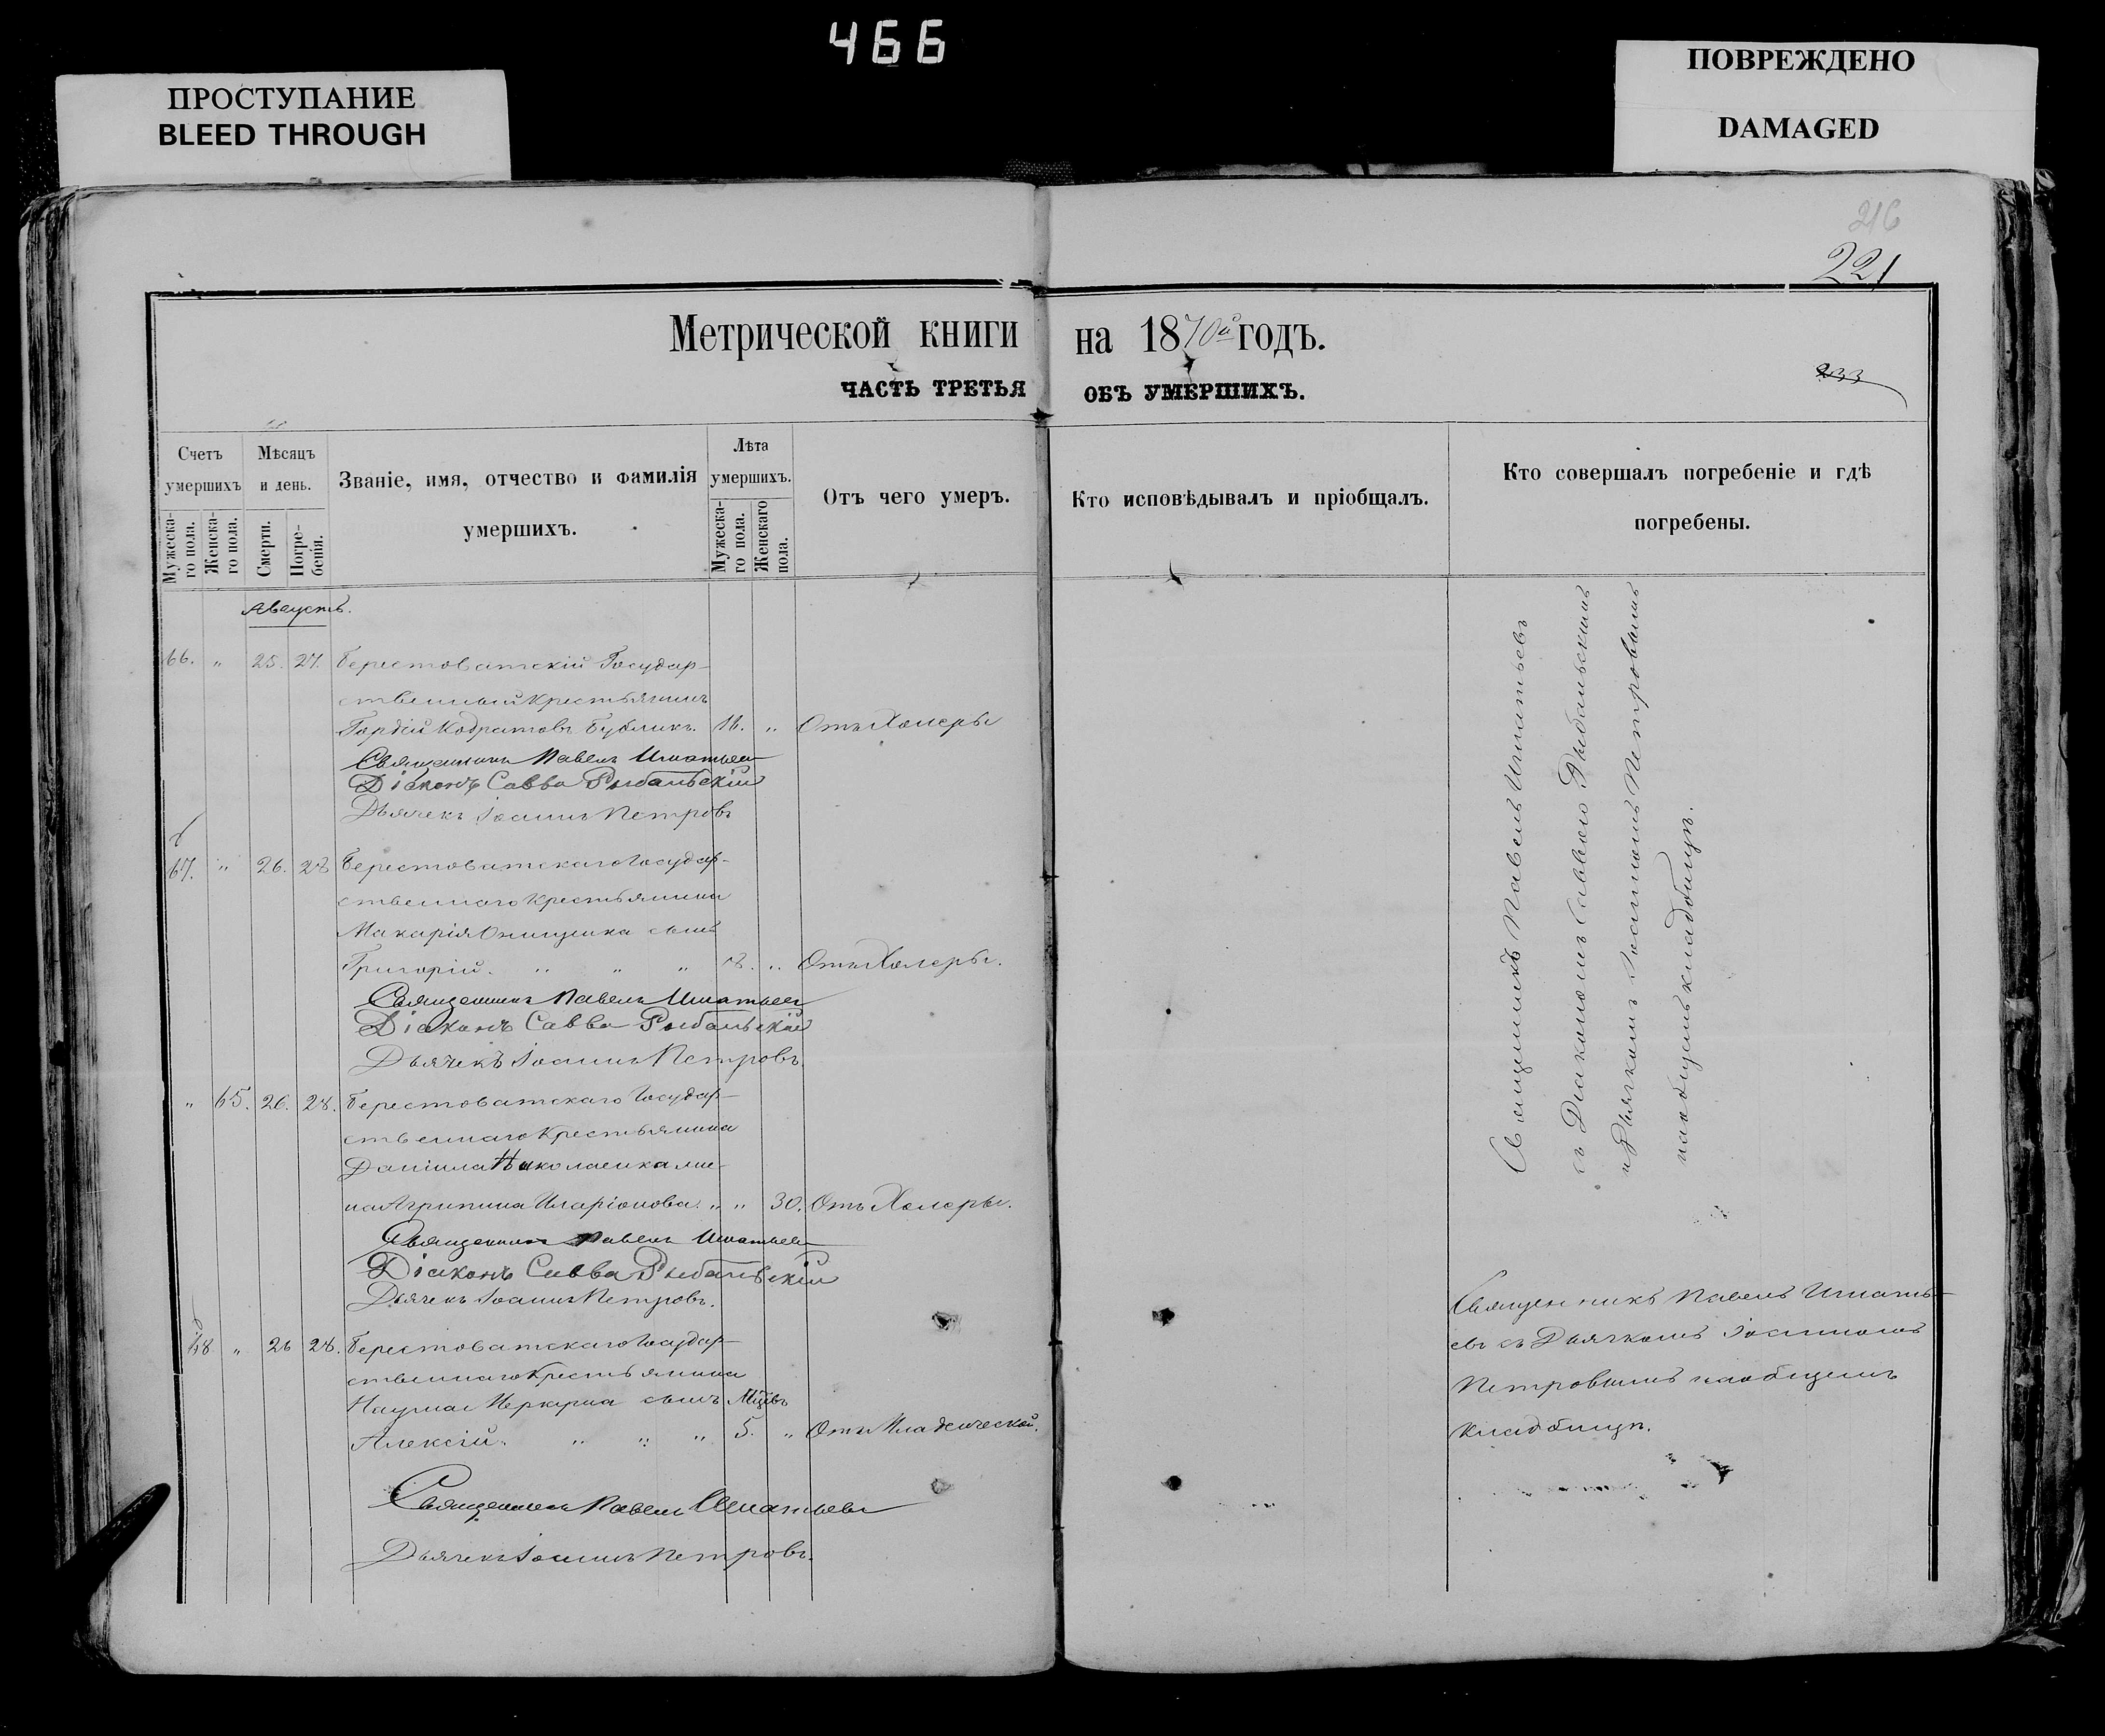 466
ПРОСТУПАНИЕ
BLEED THROUGH
ПОВРЕЖДЕНО
DAMAGED
216
221
Метрической книги на 1870й годъ.
233
ЧАСТЬ ТРЕТЬЯ ОБЪ УМЕРШИХЪ.
Счетъ умершихъ
Мужеска-го пола.
Женска-го пола.
Мѣсяцъ и день.
Смерти.
Погре-бенія.
Званіе, имя, отчество и фамилія умершихъ.
Лѣта умершихъ.
Мужеска-го пола.
Женскаго пола.
Отъ чего умеръ.
Кто исповѣдывалъ и пріобщалъ.
Кто совершалъ погребеніе и гдѣ погребены.
Августъ.
66. " 25. 27. Берестоватскій Государ-
ственный Крестьянинъ
Гордій Кодратовъ Бубликъ. 16. " Отъ Холеры
Священникъ Павелъ Игнатьевъ
Діаконъ Савва Рыбальскій
Дьячекъ Іоаннъ Петровъ
67. " 26. 28 Берестоватскаго Государ-
ственнаго Крестьянина
Макарія Онищенка сынъ
Григорій. " " " " Отъ Холеры.
Священникъ Павелъ Игнатьевъ
Діаконъ Савва Рыбальскій
Дьячекъ Іоаннъ Петровъ.
" 65. 26. 28. Берестоватскаго Государ-
ственнаго Крестьянина
Даніила Николаенка же-
на Агрипина Иларіонова. " " 30. Отъ Холеры.
Священникъ Павелъ Игнатьевъ
Діаконъ Савва Рыбальскій
Дьячекъ Іоаннъ Петровъ.
68 " 26 28. Берестоватскаго Государ-
ственнаго Крестьянина
Наума сынъ Мцвъ
Алексій. " " " 5. " Отъ Младенческой.
Священникъ Павелъ Игнатьевъ
Дьячекъ Іоаннъ Петровъ.
Священникъ Павелъ Игнатьевъ
съ Діакономъ Саввою Рыбальскимъ
и Дьячкомъ Іоанномъ Петровымъ
на общемъ кладбищѣ.
Священникъ Павелъ Игнать-
евъ съ Дьячкомъ Іоанномъ
Петровымъ на общемъ
кладбищѣ.